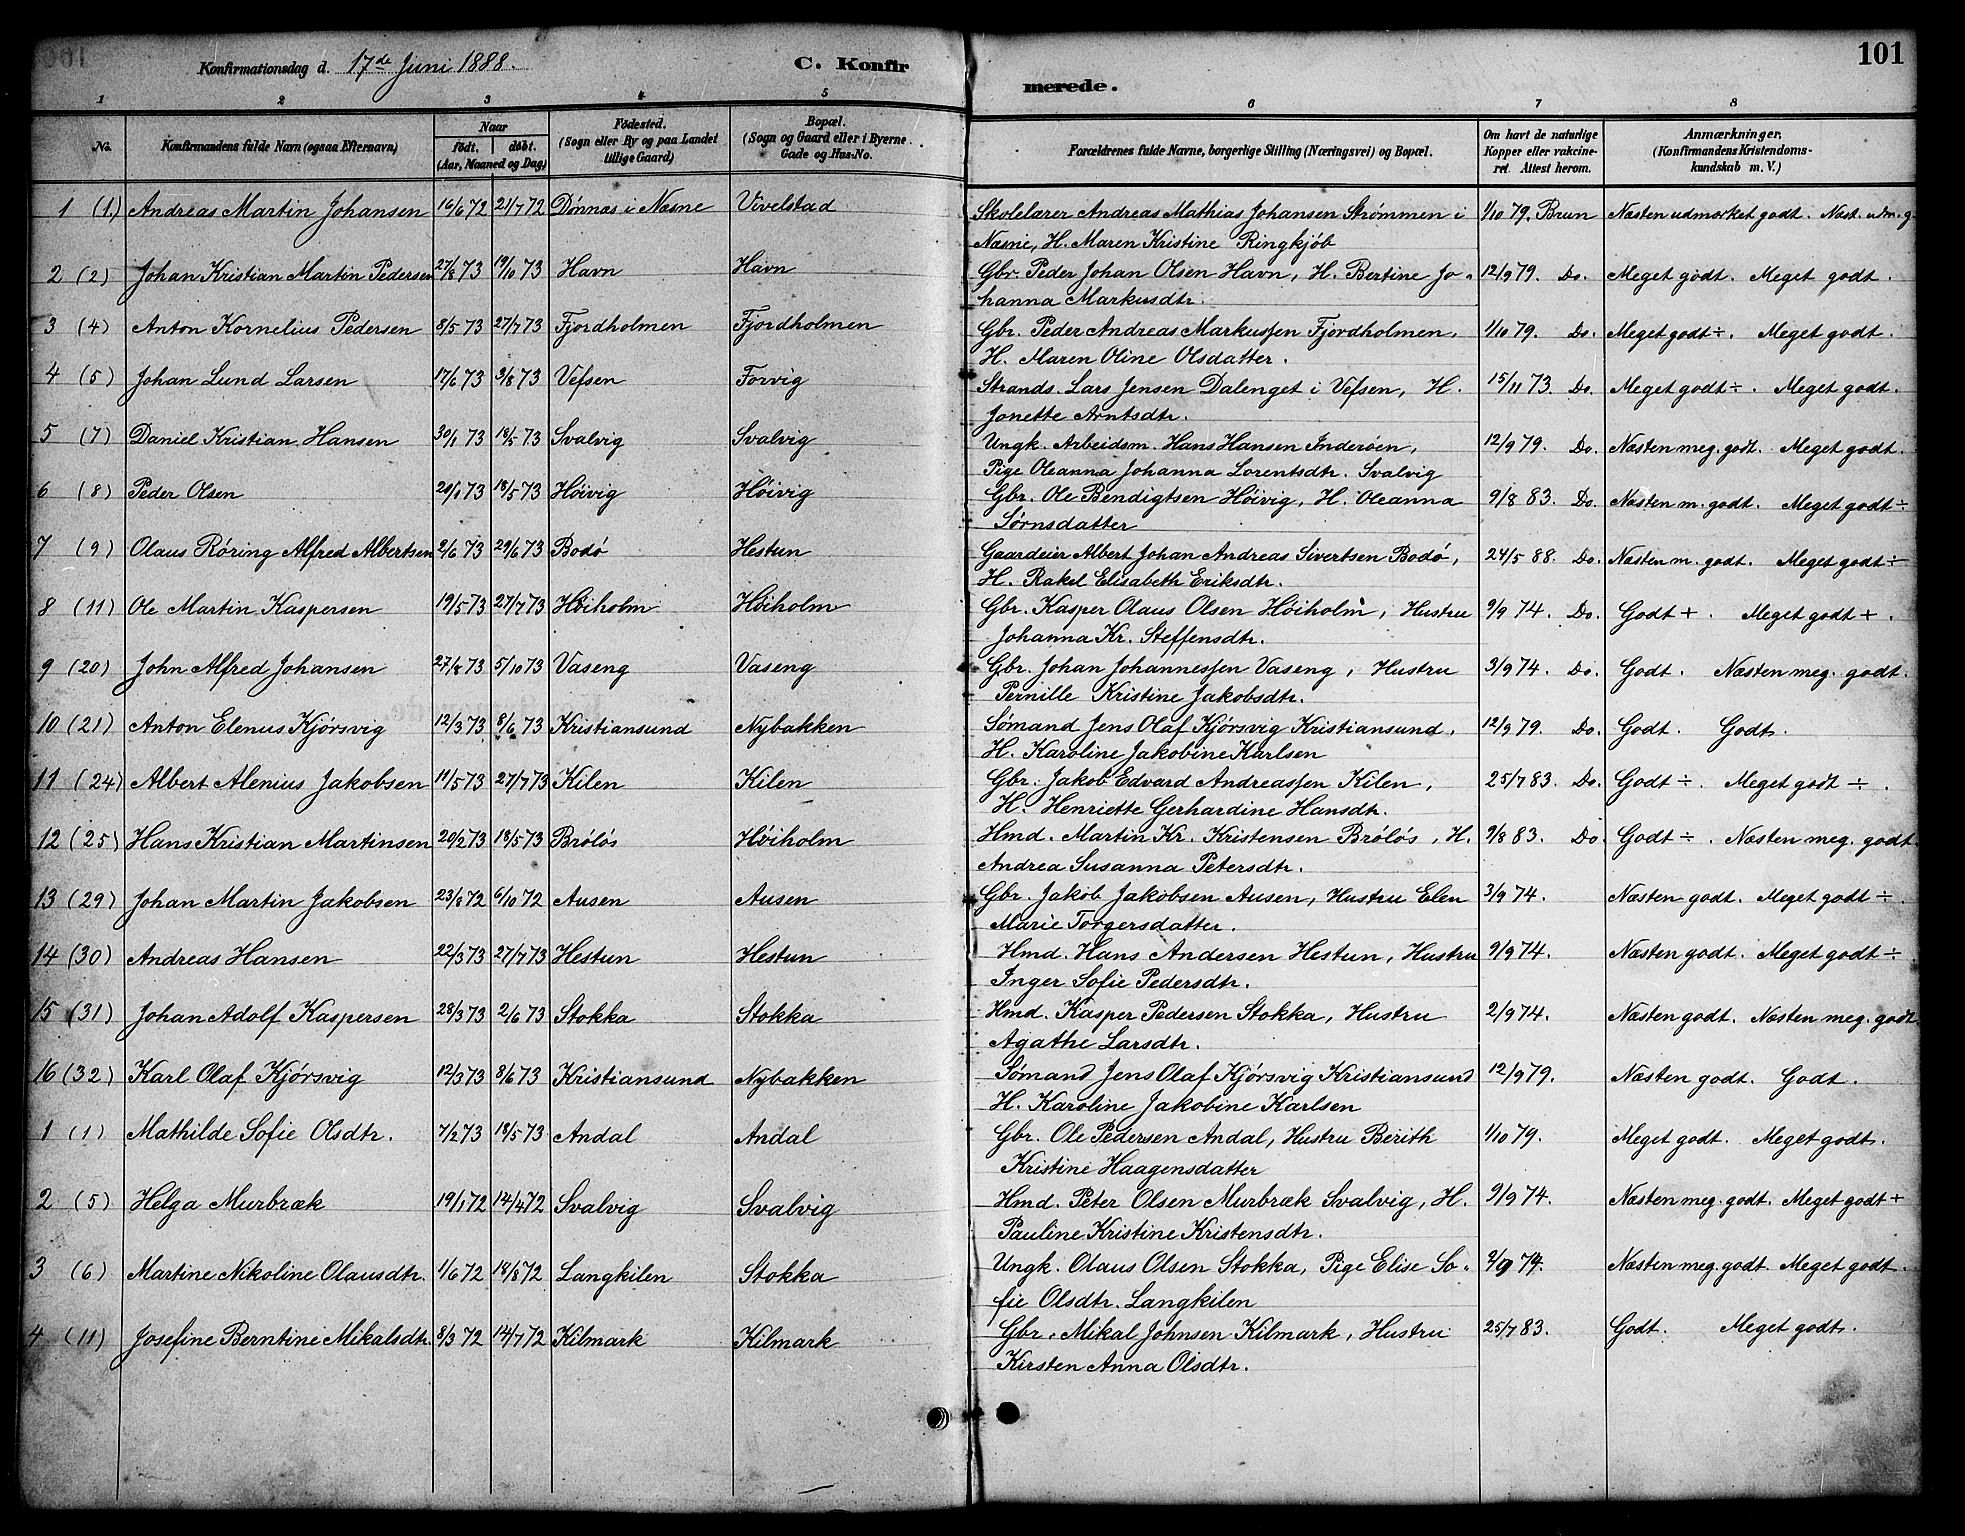 101
Konfirmationsdag d. 17de Juni 1888. C. Konfir merede.
1 2 3 4 5 6 7 8
No. Konfirmandens fulde Navn (ogsaa Efternavn) Naar født. døbt. (Aar, Maaned og Dag) Fødested. (Sogn eller By og paa Landet tillige Gaard) Bopæl. (Sogn og Gaard eller i Byerne Gade og Hus-No. Forældrenes fulde Navne, borgerlige Stilling (Næringsvei) og Bopæl. Om havt de naturlige Kopper eller vakcineret. Attest herom. Anmærkninger. (Konfirmandens Kristendomskundskab m. V.)
1 (1) Andreas Martin Johansen 16/6 72 21/7 72 Dønnæs i Næsne Vivelstad Skolelærer Andreas Mathias Johansen Strømmen i 1/10 79. Brun Næsten udmærket godt. Næst. udm. g.
Næsne, H. Maren Kristine Ringkjøb
2 (2) Johan Kristian Martin Pedersen 27/8 73 19/10 73 Havn Havn Gbr. Peder Johan Olsen Havn, H. Bertine Jo- 12/9 79. Do. Meget godt. Meget godt.
hanna Markusdtr.
3 (4) Anton Kornelius Pedersen 8/5 73 27/7 73 Fjordholmen Fjordholmen Gbr. Peder Andreas Markussen Fjordholmen, 1/10 79. Do. Meget godt ÷. Meget godt.
H. Maren Oline Olsdatter.
4 (5) Johan Lund Larsen 17/6 73 3/8 73 Vefsen Forvig Strands. Lars Jensen Dalenget i Vefsen, H. 15/11 73. Do. Meget godt ÷. Meget godt.
Jonette Arntsdtr.
5 (7) Daniel Kristian Hansen 30/1 73 18/5 73 Svalvig Svalvig Ungk. Arbeidsm. Hans Hansen Inderøen, 12/9 79. Do. Næsten meg. godt. Meget godt.
Pige Oleanna Johanna Lorentsdtr. Svalvig
6 (8) Peder Olsen 20/1 73 18/5 73 Høivig Høivig Gbr. Ole Bendigtsen Høivig, H. Oleanna 9/8 83. Do. Næsten m. godt. Meget godt ÷
Sørnsdatter
7 (9) Olaus Røring Alfred Albertsen 2/6 73 29/6 73 Bodø Hestun Gaardeier Albert Johan Andreas Sivertsen Bodø, 24/5 88. Do. Næsten m. godt. Meget godt ÷
H. Rakel Elisabeth Eriksdtr.
8 (11) Ole Martin Kaspersen 19/5 73 27/7 73 Høiholm Høiholm Gbr. Kasper Olaus Olsen Høiholm, Hustru 9/9 74. Do. Godt +. Meget godt +.
Johanna Kr. Steffensdtr.
9 (20) John Alfred Johansen 27/8 73 5/10 73 Vaseng Vaseng Gbr. Johan Johannessen Vaseng, Hustru 3/9 74. Do. Godt. Næsten meg. godt.
Pernille Kristine Jakobsdtr.
10 (21) Anton Elenus Kjørsvig 12/3 73 8/6 73 Kristiansund Nybakken Sømand Jens Olaf Kjørsvig Kristiansund, 12/9 79. Do. Godt. Godt.
H. Karoline Jakobine Karlsen
11 (24) Albert Alenius Jakobsen 11/5 73 27/7 73 Kilen Kilen Gbr. Jakob Edvard Andreassen Kilen, 25/7 83. Do. Godt ÷. Meget godt ÷.
H. Henriette Gerhardine Hansdtr.
12 (25) Hans Kristian Martinsen 20/2 73 18/5 73 Brøløs Høiholm Hmd. Martin Kr. Kristensen Brøløs, H. 9/8 83. Do. Godt ÷. Næsten meg. godt.
Andrea Susanna Petersdtr.
13 (29) Johan Martin Jakobsen 23/6 72 6/10 72 Ausen Ausen Gbr. Jakob Jakobsen Ausen, Hustru Elen 3/9 74. Næsten godt. Meget godt ÷.
Marie Torgersdatter.
14 (30) Andreas Hansen 22/3 73 27/7 73 Hestun Hestun Hmd. Hans Andersen Hestun, Hustru 9/9 74. Næsten godt. Meget godt ÷
Inger Sofie Pedersdtr.
15 (31) Johan Adolf Kaspersen 28/3 73 2/6 73 Stokka Stokka Hmd. Kasper Pedersen Stokka, Hustru 2/9 74. Næsten godt. Næsten meg. godt
Agathe Larsdtr.
16 (32) Karl Olaf Kjørsvig 12/3 73 8/6 73 Kristiansund Nybakken Sømand Jens Olaf Kjørsvig Kristiansund 12/9 79. Næsten godt. Godt.
H. Karoline Jakobine Karlsen
1 (1) Mathilde Sofie Olsdtr. 7/2 73 18/5 73 Andal Andal Gbr. Ole Pedersen Andal, Hustru Berith 1/10 79. Meget godt. Meget godt.
Kristine Haagensdatter
2 (5) Helga Murbræk 19/1 72 14/4 72 Svalvig Svalvig Hmd. Peter Olsen Murbræk Svalvig, H. 9/9 74. Næsten meg. godt. Meget godt +
Pauline Kristine Kristensdtr.
3 (6) Martine Nikoline Olausdtr. 1/6 72 18/8 72 Langkilen Stokka Ungk. Olaus Olsen Stokka, Pige Elise So- 2/9 74. Næsten meg. godt. Meget godt.
fie Olsdtr. Langkilen
4 (11) Josefine Berntine Mikalsdtr. 8/3 72 14/7 72 Kilmark Kilmark Gbr. Mikal Johnsen Kilmark, Hustru 25/7 83. Godt. Meget godt.
Kirsten Anna Olsdtr.